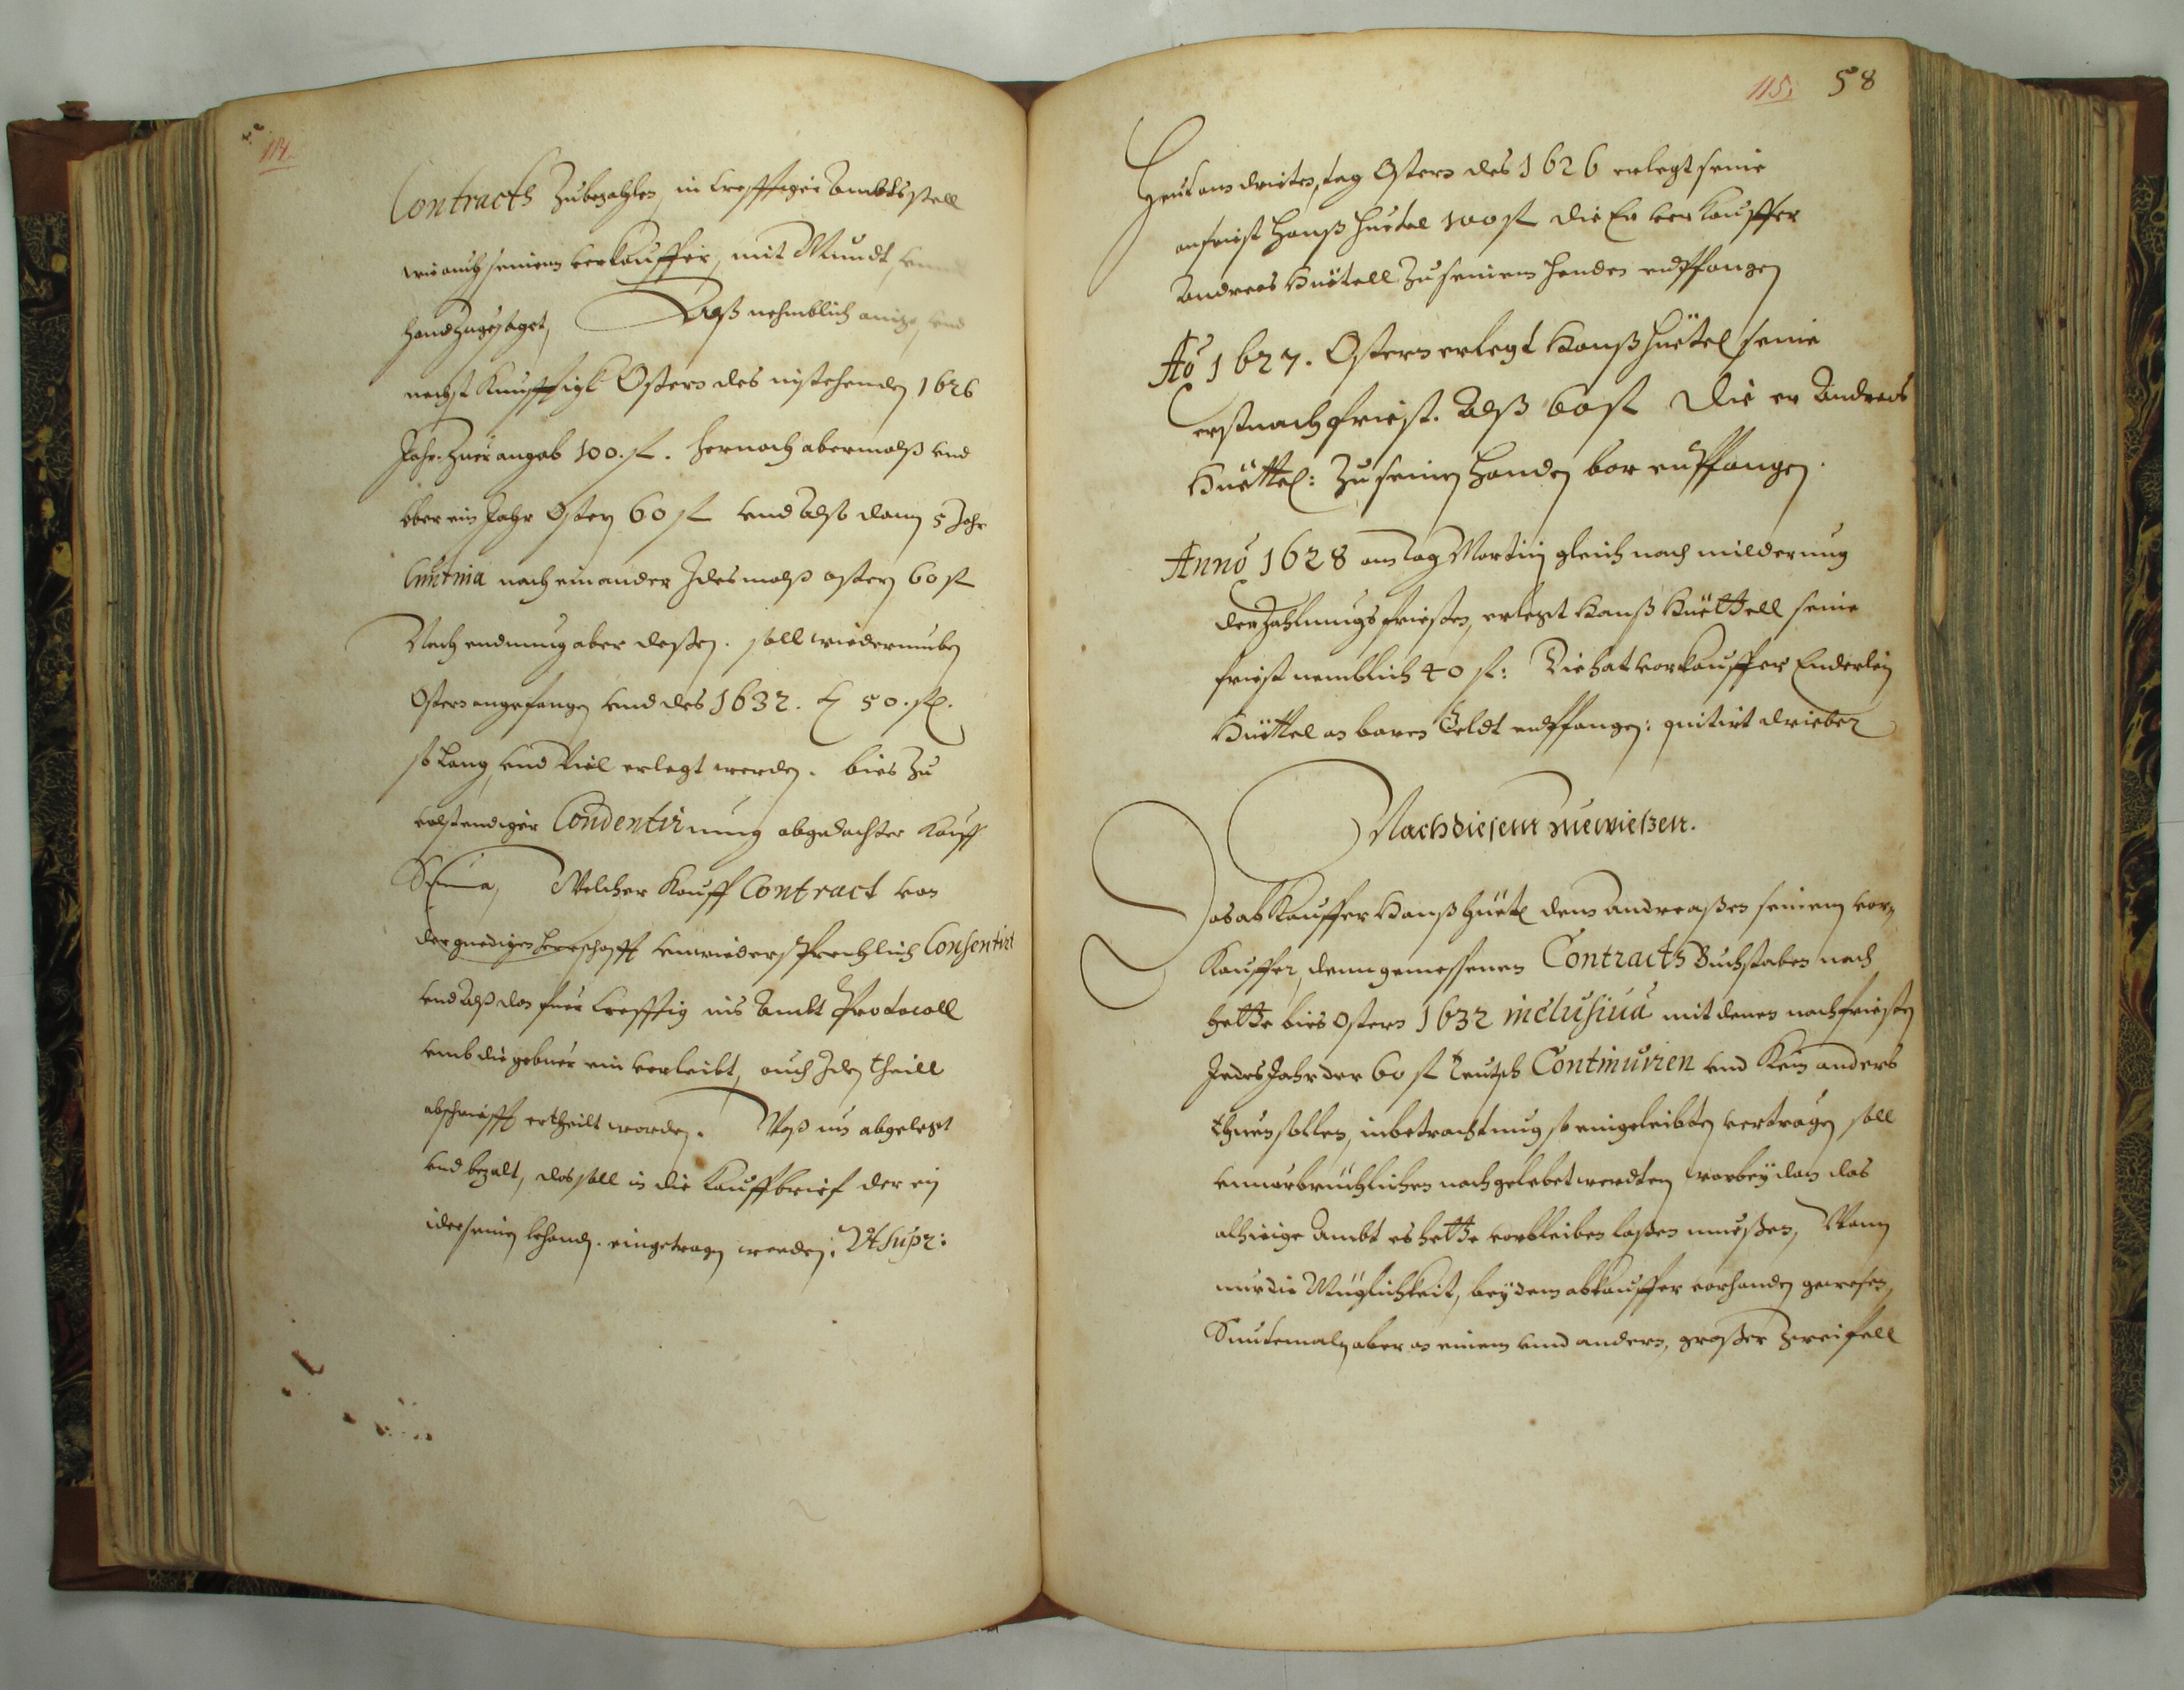 114.
Contracts Zubezahlen, in Creffttiger Ambtsstell
wie auch seinem verkauffer, mit Mundt
Handt zugesaget, Alß nehmblich anizo, vnd
nechst Kunfftigk Ostern des instehenden 1626
Jahr. Zuer angab 100. fl. hernach abermalß vnd
vber ein Jahr Ostern 60 fl vnd Alßo dann 5 Jahr
nach einander Idesmalß ostern 60 fl
Nach endnung aber deßen. soll wiederumben
Ostern angefangen vnd des 1632. 50. fl.
so lang vnd Viel erlegt werden. bies Zu
volstendiger Condentirnung abgedachter Kauff
Suma, Welcher Kauff Contract von
der gnedigen herrschafft vnwiedersprechlich Consentirt
vnd Alß dan fuer Crefftig ins Ambt Protocoll
vmb die gebuer ein verleibt, auch Iden theill
abschriefft ertheilt worden. Waß nun abgelegt
vnd bezalt, das soll in die Kauffbrief der ein
ider seinen behendt. eingetragen werden: Vt Supr:
115. 58
Heut am driten tag Ostern des 1626 erlegt seine
anfriest Hanß Huetel 100 fl die Er verkauffer
Andreas Hüetell Zu seinem handen endtpfangen
Ao 1627. Ostern erlegt Hanß Huetel seine
erst nachfriest. Alß 60 fl die er Andreas
Hüettel: Zu seinen Handen bar endtpfangen.
Anno 1628 am tag Martini gleich nach milderung
der Zahlungsfriesten, erlegt Hanß Hüettell seine
friest nemblich 40 fl: Die hat verkauffer Enderlein
Hüettel an baren Geldt endtpfangen: quitirt drieber
Nach diesem zuewießen.
Das ab Kauffer Hanß Huetl dem Andreaßen seinem ver,
Kauffer, denn gemessenen Contracts Buchstaben nach
hette bies Ostern 1632 inclusiua mit denen nachfriesten
Iedes Jahr der 60 fl teutsch Continuiren vnd Kein anders
thuen sollen, inbetrachtnug so eingeleibten vertragen soll
vnuerbruchlichen nachgelebet werdten worbey dan das
alhieige Ambt es hette verbleiben laßen mueßen, Wann
nur die Müglichkeit, bey dem abkauffer vorhanden gewesen,
Sintemaln aber an einem vnd andern, großer Zweifell